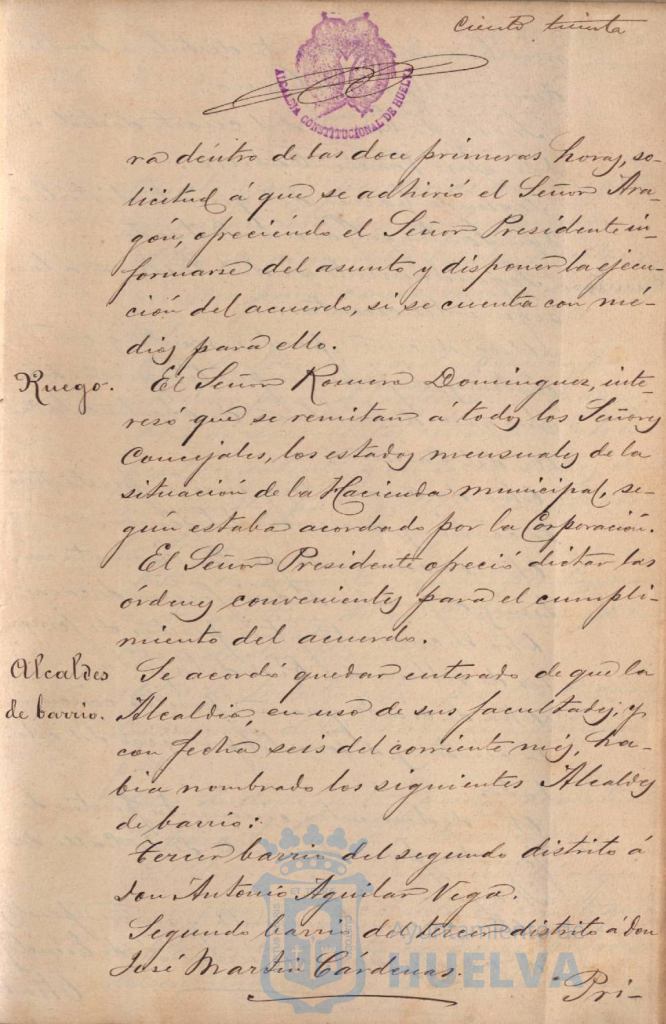 ciento treinta
ALCALDIA CONSTITUCIONAL DE HUELVA
ra dentro de las doce primeras horas, so-
licitud á que se adhirió el Señor Ara-
gón, ofreciendo el Señor Presidente in-
formarse del asunto y disponer la ejecu-
ción del acuerdo, si se cuenta con mé-
dios para ello.
Ruego. El Señor Romero Dominguez, inte-
resó que se remitan á todos los Señores
Concejales, los estados mensuales de la
situación de la Hacienda municipal, se-
gún estaba acordado por la Corporación.
El Señor Presidente ofreció dictar las
órdenes convenientes para el cumpli-
miento del acuerdo.
Alcaldes de barrio. Se acordó quedar enterado de que la
Alcaldia, en uso de sus facultades, y
con fecha seis del corriente mes, ha-
bia nombrado los siguientes Alcaldes
de barrio:
Tercer barrio del segundo distrito á
Don Antonio Aguilar Vega.
Segundo barrio del tercer distrito á Don
José Martin Cárdenas.
Pri-
Ayuntamiento de
HUELVA